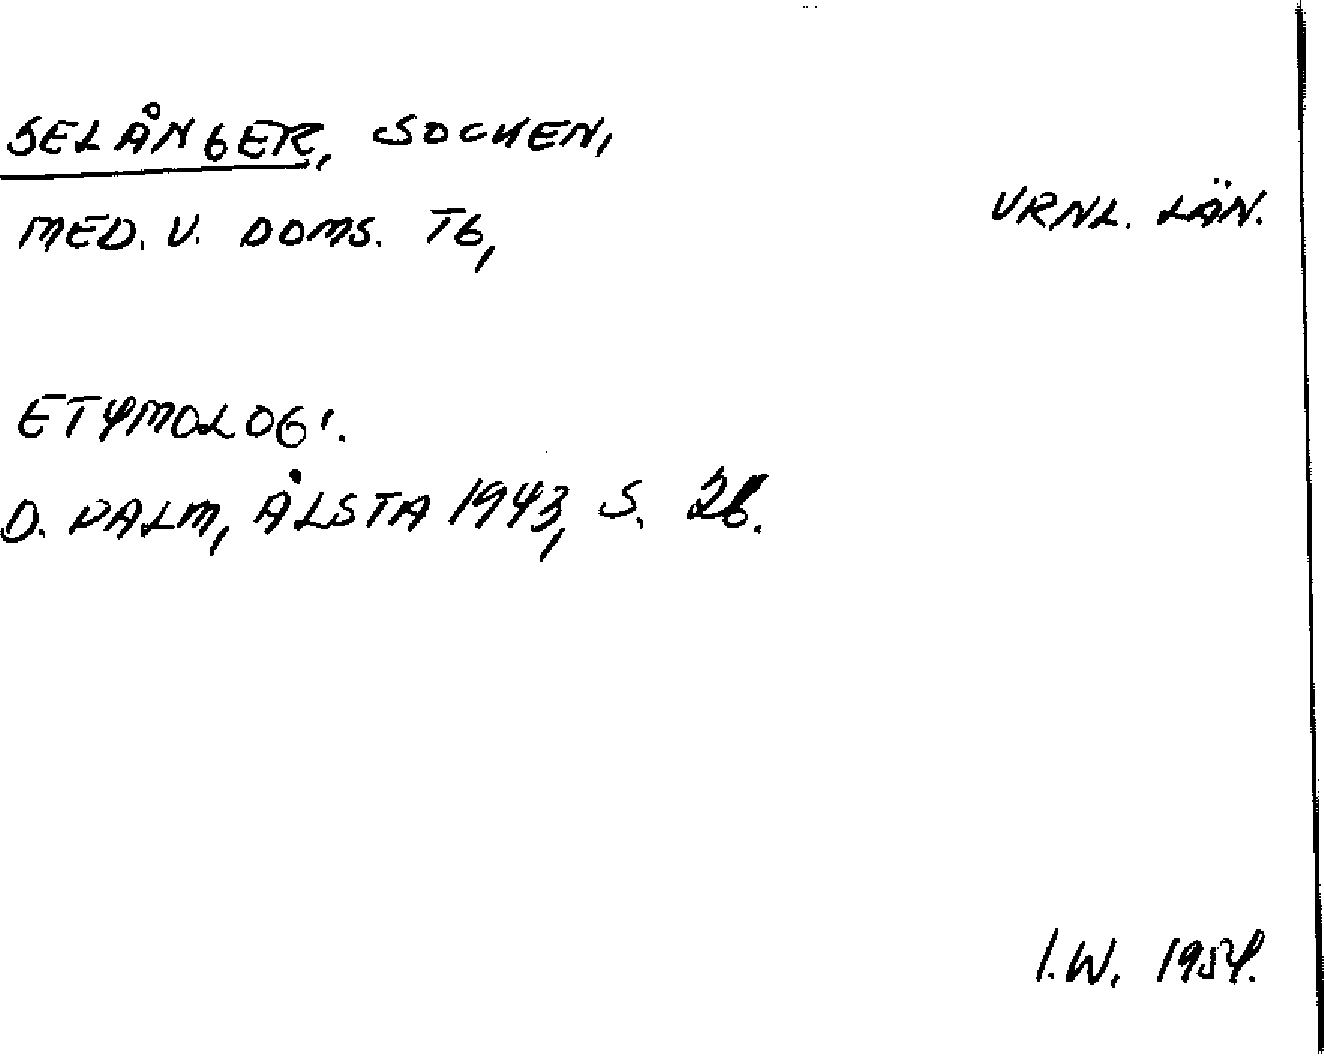 SELÅNGER, SOCKEN,
MED. V. DOMS. TG,
VRNL. LÄN.
ETYMOLOGI.
D. PALM, ÅLSTA 1943, S. 26.
I.W. 1954.